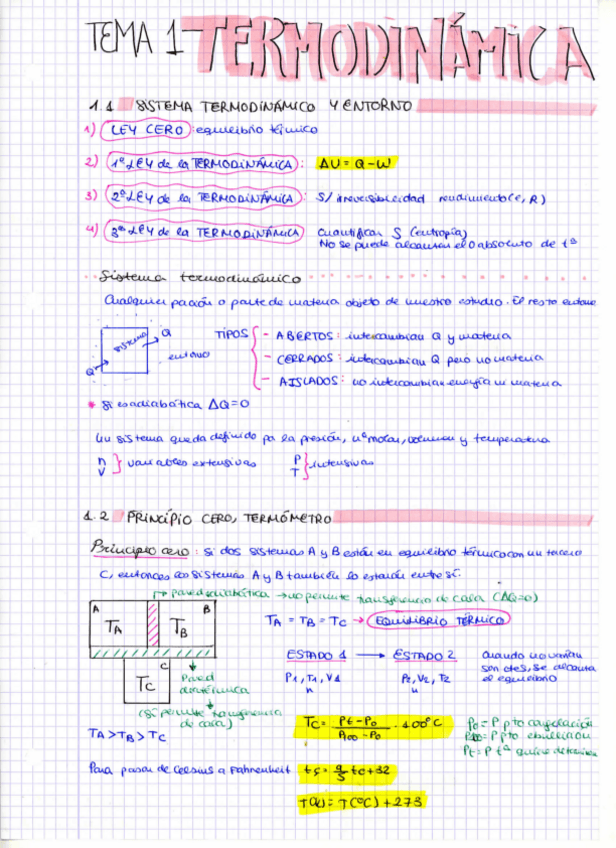 TEMA 1 TERMODINÁMICA
1.1 SISTEMA TERMODINÁMICO Y ENTORNO
1) LEY CERO: equilibrio térmico
2) 1ª LEY de la TERMODINÁMICA: ΔU = Q - W
3) 2ª LEY de la TERMODINÁMICA: S/ irreversibilidad rendimiento (e, R)
4) 3ª LEY de la TERMODINÁMICA Cuantificar S (entropía)
No se puede alcanzar el 0 absoluto de tª
Sistema termodinámico
Cualquier porción o parte de materia objeto de nuestro estudio. El resto entorno
sistema Q entorno Q
TIPOS - ABIERTOS: intercambian Q y materia
- CERRADOS: intercambian Q pero no materia
- AISLADOS: no intercambian energía ni materia
* Si es adiabática ΔQ=0
Un sistema queda definido por la presión, nº molar, volumen y temperatura
n V } variables extensivas P T } intensivas
1.2 PRINCIPIO CERO, TERMÓMETRO
Principio cero: si dos sistemas A y B están en equilibrio térmico con un tercero
C, entonces los sistemas A y B también lo estarán entre sí.
pared adiabática → no permite transferencia de calor (ΔQ=0)
A B
TA TB
C
TC
Pared diatérmica
(Sí permite transferencia de calor)
TA = TB = TC → EQUILIBRIO TÉRMICO
ESTADO 1 → ESTADO 2
P1, T1, V1 P2, V2, T2
n n
Cuando no varían
son ctes, se alcanza
el equilibrio
TA > TB > TC
TC = Pt - P0 / P100 - P0 · 100ºC
P0 = P pto congelación
P100 = P pto ebullición
Pt = P tª
Para pasar de Celsius a Fahrenheit tF = 9/5 tc + 32
T(K) = T(ºC) + 273